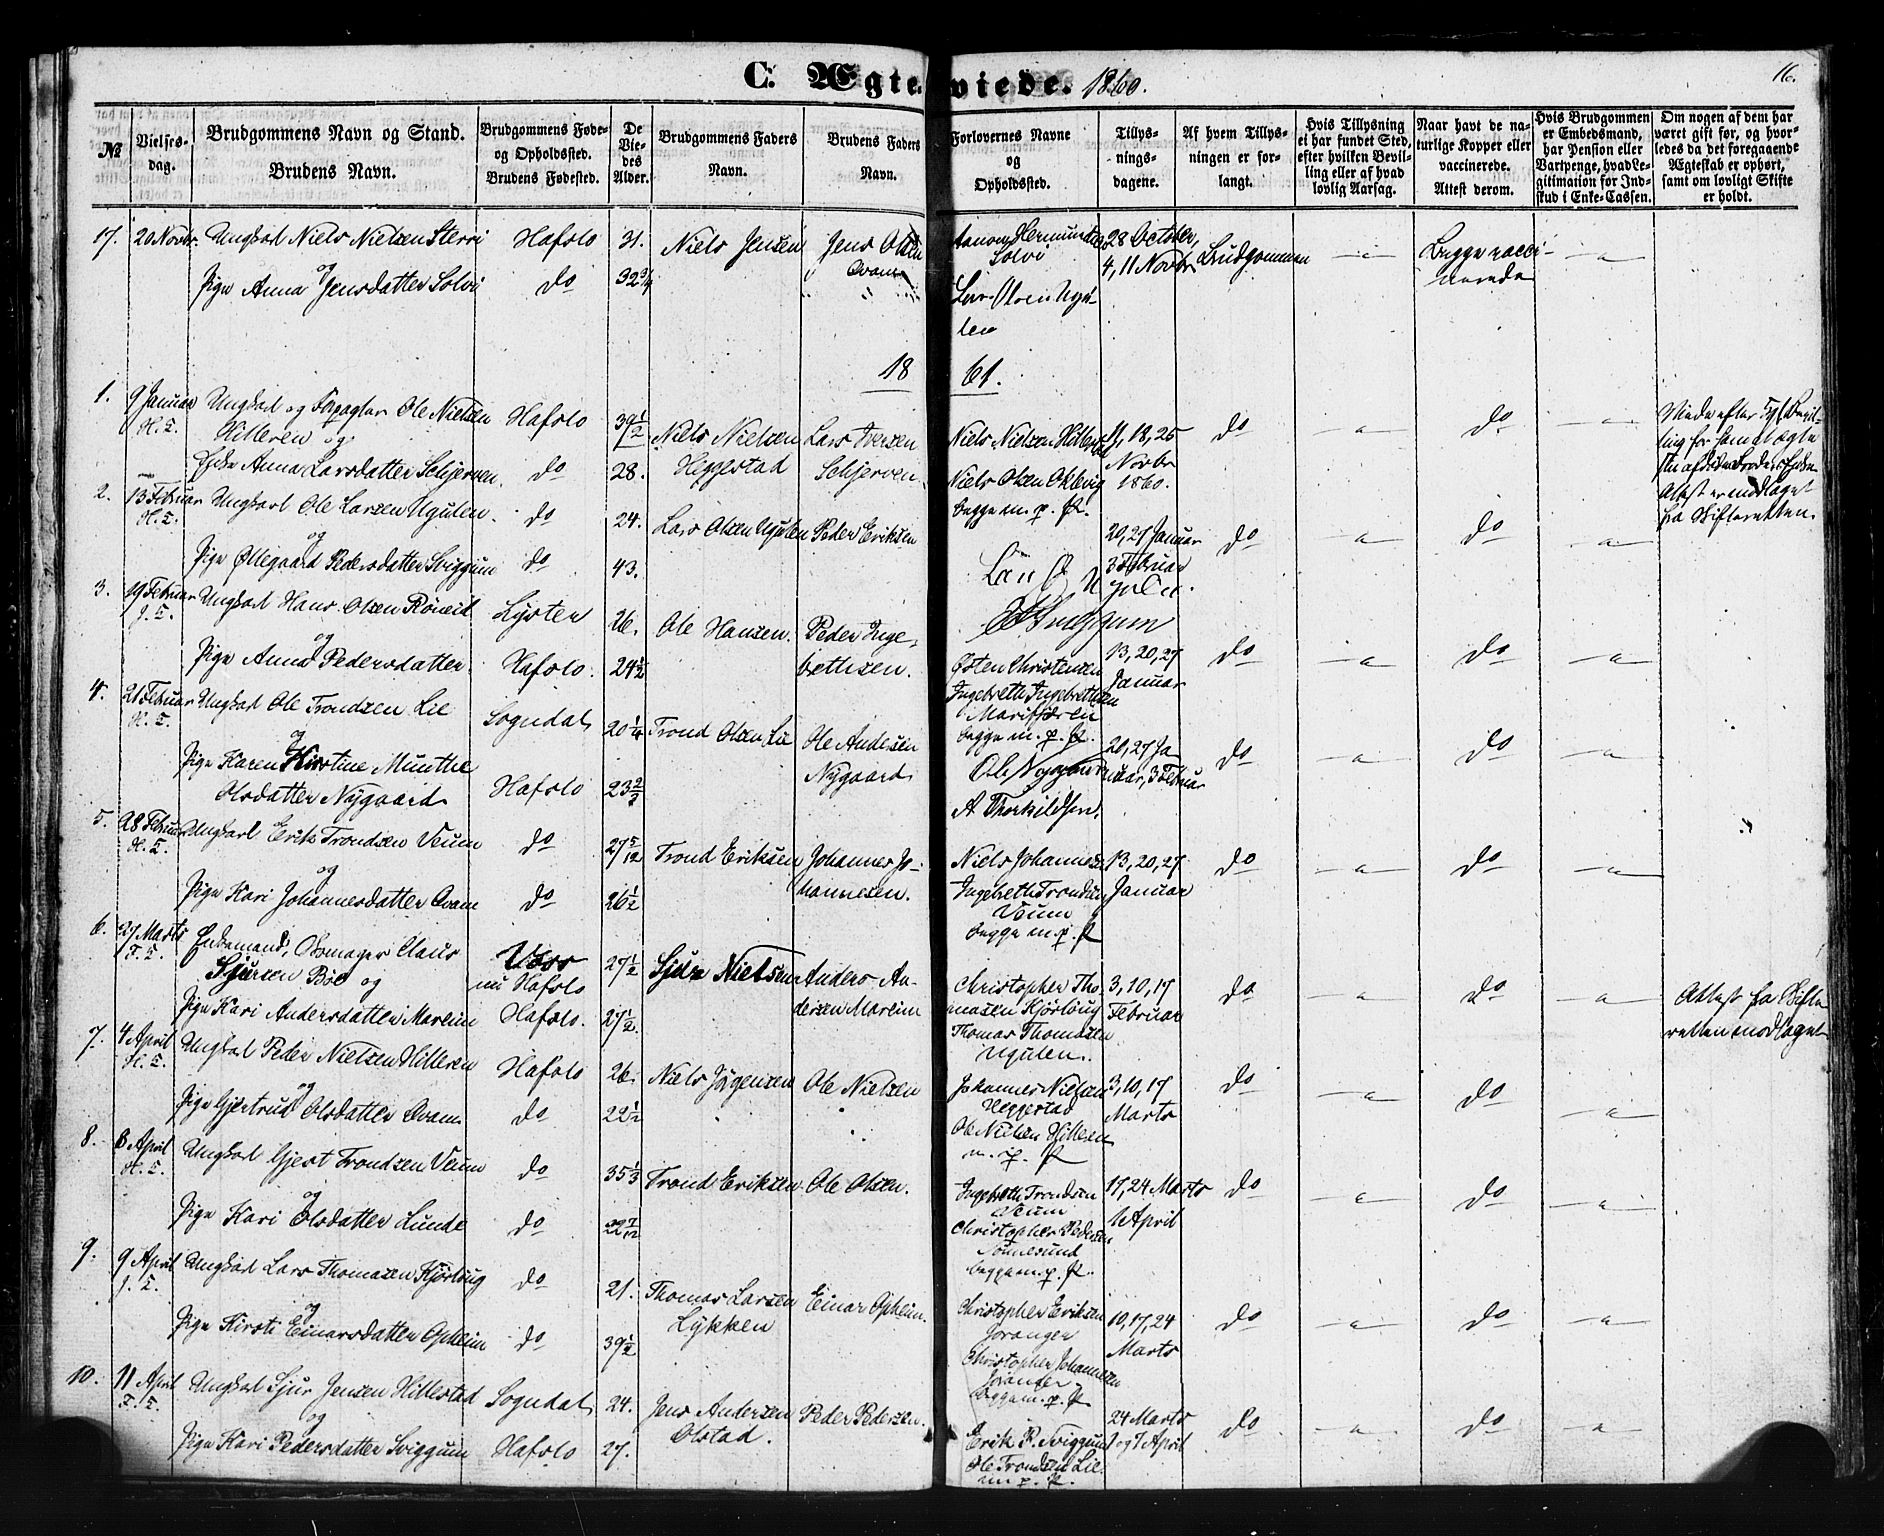 C. Ægteviede. 1860.
16.
№
Vielses-dag.
Brudgommens Navn og Stand.
Brudens Navn.
Brudgommens Føde- og Opholdssted.
Brudens Fødested.
De Viedes Alder.
Brudgommens Faders Navn.
Brudens Faders Navn.
Forlovernes Navne og Opholdssted.
Tillysningsdagene.
Af hvem Tillysningen er forlangt.
Hvis Tillysning ei har fundet Sted, efter hvilken Bevilling eller af hvad lovlig Aarsag.
Naar havt de naturlige Kopper eller vaccinerede. Attest derom.
Hvis Brudgommen er Embedsmand, har Pension eller Vartpenge, hvad Legitimation for Indskud i Enke-Cassen.
Om nogen af dem har været gift før, og hvorledes da det foregaaende Ægteskab er ophørt, samt om lovligt Skifte er holdt.
17. 20 Novbr. Ungkarl Niels Nielsen Sterri Hafslo 31. Niels Jensen Jens Olsen Kvam Hermundsen Solvi 28 October, 4, 11 Novbr Brudgommen — Begge vaccinerede —
og
Pige Anna Jensdatter Solvi do 32 3/4 Lars Olsen Ugulen
18 61.
1. 9 Januar H. K. Ungkarl og Forpagter Ole Nielsen Hilleren og Hafslo 39 1/2 Niels Nielsen Heggestad Lars Iversen Schjerven Niels Nielsen 11, 18, 25 Novbr 1860. do — do —
Enke Anna Larsdatter Schjerven. do 28. Niels Olsen Oklevig begge m. p. P.
Attest er modtaget fra Skifteretten.
2. 13 Februar H. K. Ungkarl Ole Larsen Ugulen. do 24. Lars Olsen Ugulen Peder Eriksen 20, 27 Januar 3 Februar do — do —
og
Pige Øllegaard Pedersdatter Sviggum do 43. Lars O Ugulen.
3. 19 Februar J. K. Ungkarl Hans Olsen Røneid Lyster 26. Ole Hansen. Peder Ingebethsen. Østen Christensen 13, 20, 27 Januar do — do —
og
Pige Anna Pedersdatter Hafslo. 24 1/2 Ingebreth Ingebrethsen Marifjæren begge m. p. P.
4. 21 Februar H. K. Ungkarl Ole Trondsen Lie Sogndal 20 1/4 Trond Olsen Lie Ole Andersen Nygaard Ole Nygaard 20, 27 Januar, 3 Februar do — do —
og
Pige Karen Kirstine Munthe Olsdatter Nygaard Hafslo 23 2/3 A Thorkildsen.
5. 28 Februar H. K. Ungkarl Erik Trondsen Veum do 27 5/12 Trond Eriksen Johannes Johannesen. Niels Johannesen 13, 20, 27 Januar do — do —
og
Pige Kari Johannesdatter Kvam do 26 1/2 Ingebreth Trondsen Veum begge m. p. P
6. 27 Marts F. K. Enkemand, Claus Sjursen Bøe og Voss nu Hafslo 27 1/2 Sjur Nielsen Anders Andersen Mareim Christopher Thomasen Kjørlaug 3, 10, 17 Februar do — do — Attest fra Skifteretten modtaget
Pige Kari Andersdatter Mareim Hafslo. 27 1/2. Thomas Thomasen Ugulen.
7. 4 April H. K. Ungkarl Peder Nielsen Hilleren Hafslo 26. Niels Jørgensen Ole Nielsen Johannes Nielsen Heggestad 3, 10, 17 Marts do — do —
og
Pige Gjertrud Olsdatter Kvam. do 22 1/2 Ole Nielsen Hilleren m. p. P
8. 8 April H. K. Ungkarl Gjest Trondsen Veum do 35 1/3 Trond Eriksen Ole Olsen. Ingebreth Trondsen Veum 17, 24 Marts 1 April do — do —
og
Pige Kari Olsdatter Lunde do 22 7/12 Christopher Pedersen begge m. p. P.
9. 9 April J. K. Ungkarl Lars Thomasen Kjørlaug do 21. Thomas Larsen Lykken Einar Opheim. Christopher Eriksen Joranger 10, 17, 24 Marts do — do —
og
Pige Kirsti Einarsdatter Opheim do 39 1/2 Christopher Johannesen Joranger begge m. p. P
10. 11 April F. K. Ungkarl Sjur Jensen Hillestad Sogndal 24. Jens Andersen Olstad. Peder Pedersen. Erik P. Sviggum 24 Marts 1 og 7 April do — do —
og
Pige Kari Pedersdatter Sviggum Hafslo 27. Ole Trondsen Lie m. p. P.